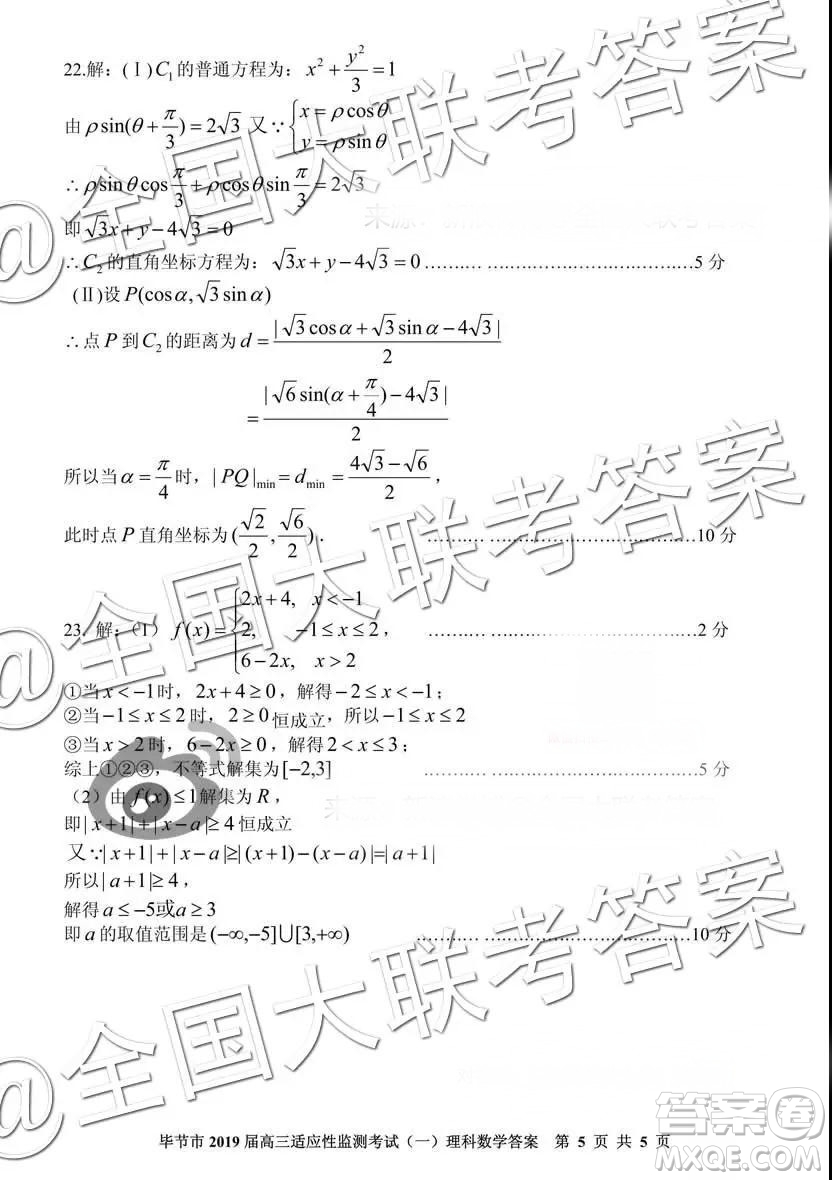 22.解：(Ⅰ)C₁的普通方程为：x²+y²/3=1
由ρsin(θ+π/3)=2√3 又∵{x=ρcosθ
y=ρsinθ
∴ρsinθcosπ/3+ρcosθsinπ/3=2√3
即√3x+y-4√3=0
∴C₂的直角坐标方程为：√3x+y-4√3=0 ……………………………5分
(Ⅱ)设P(cosα,√3sinα)
∴点P到C₂的距离为d=|√3cosα+√3sinα-4√3|/2
=|√6sin(α+π/4)-4√3|/2
所以当α=π/4时，|PQ|min=dmin=(4√3-√6)/2，
此时点P直角坐标为(√2/2,√6/2)． ……………………………10分
23．解：（1）f(x)={2x+4, x<-1
2, -1≤x≤2， ……………………………2分
6-2x, x>2
①当x<-1时，2x+4≥0，解得-2≤x<-1；
②当-1≤x≤2时，2≥0恒成立，所以-1≤x≤2
③当x>2时，6-2x≥0，解得2<x≤3；
综上①②③，不等式解集为[-2,3] ……………………………5分
（2）由f(x)≤1解集为R，
即|x+1|+|x-a|≥4恒成立
又∵|x+1|+|x-a|≥|(x+1)-(x-a)|=|a+1|
所以|a+1|≥4，
解得a≤-5或a≥3
即a的取值范围是(-∞,-5]∪[3,+∞) ……………………………10分
@全国大联考答案
@全国大联考答案
@全国大联考答案
毕节市2019届高三适应性监测考试（一）理科数学答案 第 5 页 共 5 页
答案圈
MXQE.COM